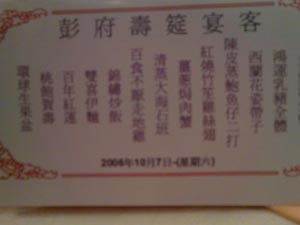 彭府壽筵宴客
鴻運乳豬全體
西蘭花姿帶子
陳皮蒸鮑魚仔二打
紅燒竹笙雞絲翅
薑蔥焗肉蟹
清蒸大海石班
百食不厭走地雞
錦繡炒飯
雙喜伊麵
百年紅運
桃飽賀壽
環球生果盆
2006年10月7日-(星期六)